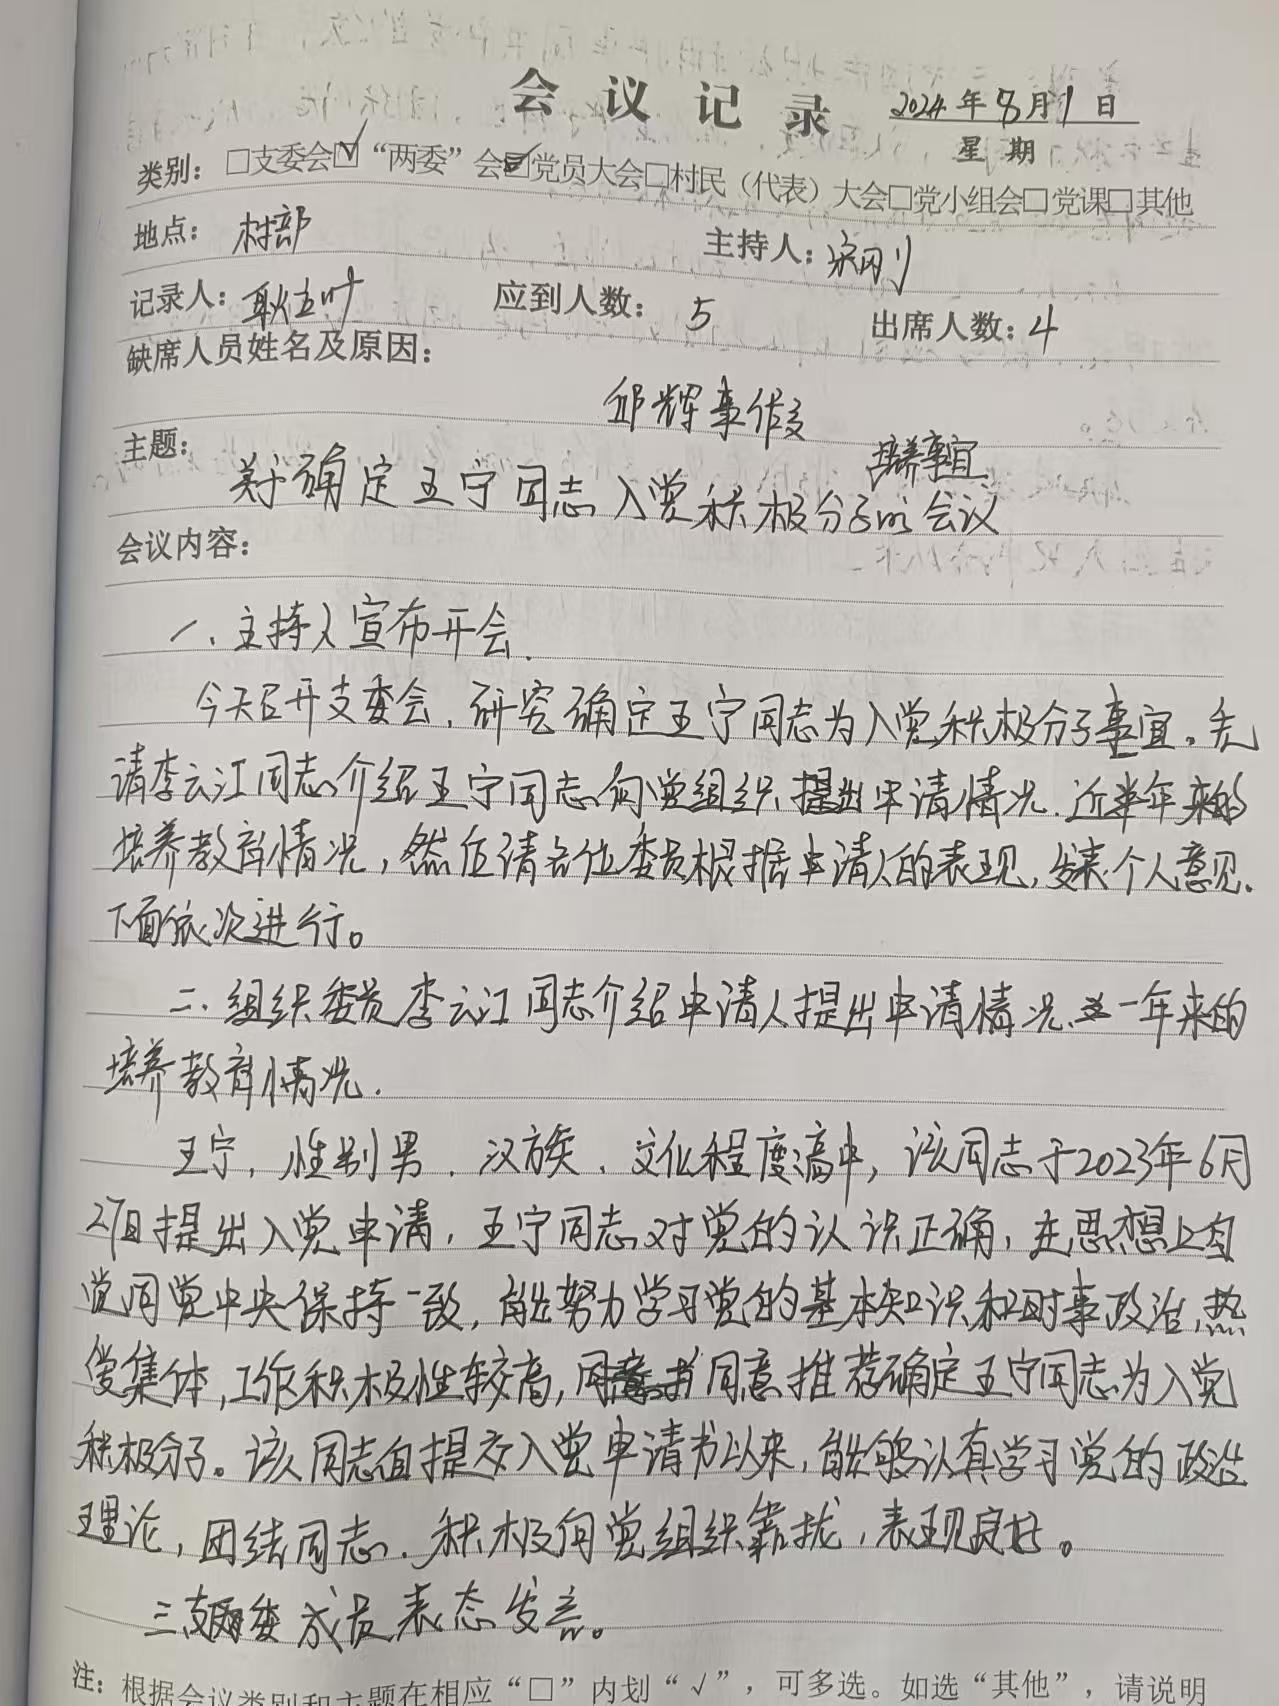 会议记录 2024年8月1日
星期
类别：□支委会☑“两委”会☑党员大会□村民（代表）大会□党小组会□党课□其他
地点：村部 主持人：宋刚
记录人： 应到人数：5 出席人数：4
缺席人员姓名及原因：
邱辉事假
培养事宜
主题：关于确定王宁同志入党积极分子的会议
会议内容：
一、主持人宣布开会.
今天召开支委会，研究确定王宁同志为入党积极分子事宜。先
请李云江同志介绍王宁同志向党组织提出申请情况.近半年来的
培养教育情况，然后请各位委员根据申请人的表现，发表个人意见.
下面依次进行。
二、组织委员李云江同志介绍申请人提出申请情况、一年来的
培养教育情况.
王宁，性别男，汉族、文化程度高中，该同志于2023年6月
27日提出入党申请，王宁同志对党的认识正确，在思想上自
觉同党中央保持一致，能努力学习党的基本知识和时事政治，热
爱集体，工作积极性较高，同意推荐确定王宁同志为入党
积极分子。该同志自提交入党申请书以来，能够认真学习党的政治
理论，团结同志.积极向党组织靠拢，表现良好。
三、委成员表态发言。
注：根据会议类别和主题在相应“□”内划“√”，可多选。如选“其他”，请说明